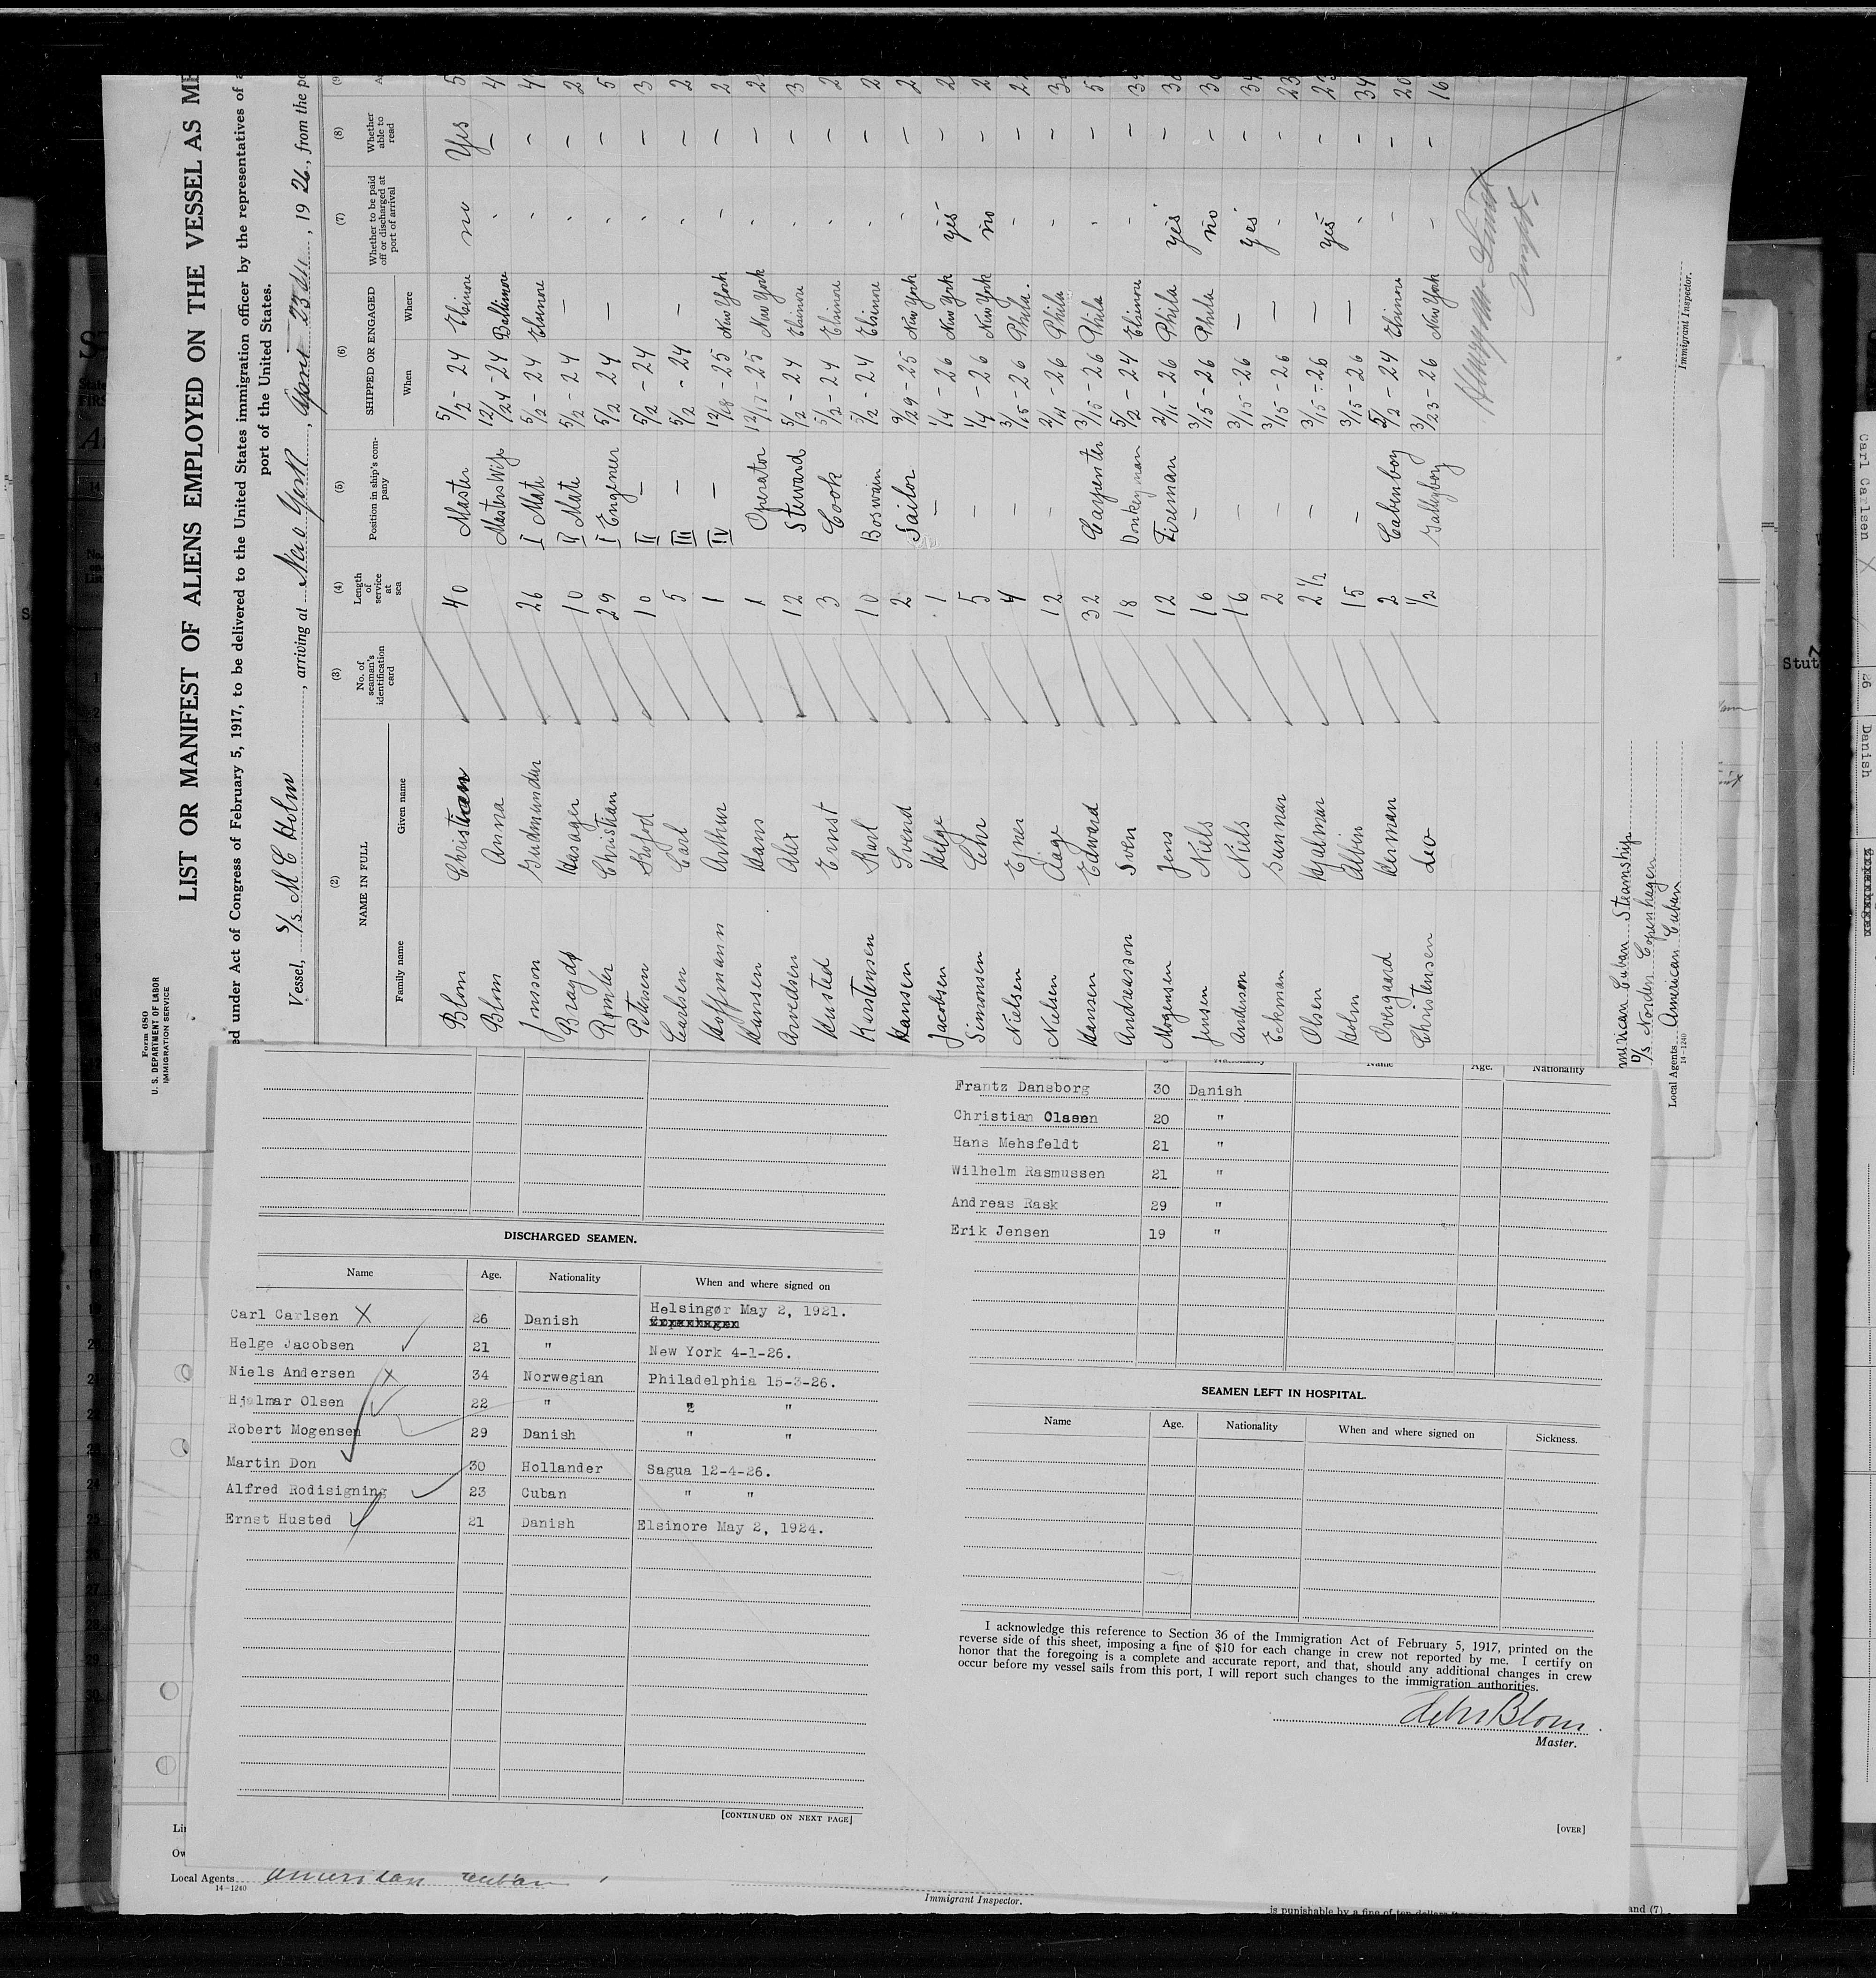 Form 680
U. S. DEPARTMENT OF LABOR
IMMIGRATION SERVICE
LIST OR MANIFEST OF ALIENS EMPLOYED ON THE VESSEL AS ME
ed under Act of Congress of February 5, 1917, to be delivered to the United States immigration officer by the representatives of a
port of the United States.
Vessel, S/s M C Holm, arriving at New York, April 23, 1926, from the po
(2) (3) (4) (5) (6) (7) (8) (9
NAME IN FULL No. of seaman's identification card Length of service at sea Position in ship's company SHIPPED OR ENGAGED Whether to be paid off or discharged at port of arrival Whether able to read A
Family name Given name When Where
Blom Christian 40 Master 5/2 - 24 Elsinore no Yes 5
Blom Anna Masters Wife 12/24 - 24 Baltimore - - 4
Jonsson Gudmundur 26 I Mate 5/2 - 24 Elsinore - - 4
Bragdø Hasager 10 II Mate 5/2 - 24 - - - 2
Christian 29 I Engeneer 5/2 - 24 - - - 5
Petersen Kofod 10 II - 5/2 - 24 - - 3
Carlsen Carl 5 III - 5/2 - 24 - - - 2
Hoffmann Arthur 1 IV - 12/18 - 25 New York - - 2
Hansen Hans 1 Operator 12/17 - 25 New York - - 2
Arvedsen Alex 12 Steward 5/2 - 24 Elsinore - - 3
Husted Ernst 3 Cook 5/2 - 24 Elsinore - - 2
Kerstensen Karl 10 Boswain 5/2 - 24 Elsinore - - 2
Hansen Svend 2 Sailor 9/29 - 25 New York - - 2
Jacobsen Helge 1 - 1/4 - 26 New York yes - 2
Simonsen Chr 5 - 1/4 - 26 New York no - 2
Nielsen Ejner 4 - 3/15 - 26 Phila. - - 2
Nielsen Aage 12 - 2/11 - 26 Phila - - 3
Hansen Edward 32 Carpenter 3/15 - 26 Phila - - 5
Andreasson Sven 18 Donkeyman 5/2 - 24 Elsinore - - 3
Mogensen Jens 12 Fireman 2/11 - 26 Phila yes - 30
Jensen Niels 16 - 3/15 - 26 Phila no - 3
Anderson Niels 16 - 3/15 - 26 - yes - 34
Eckman Gunnar 2 - 3/15 - 26 - - - 23
Olsen Hjalmar 2 1/2 - 3/15 - 26 - yes - 2
Holm Albin 15 - 3/15 - 26 - - - 34
Overgaard Herman 2 Cabinboy 5/2 - 24 Elsinore - 20
Christensen Leo 1/2 Galleyboy 3/23 - 26 New York - - 16
merican Cuban Steamship
D/s Norden Copenhagen
Local Agents American Cuban
14-1240
Immigrant Inspector.
DISCHARGED SEAMEN.
Name Age. Nationality When and where signed on
Carl Carlsen X 26 Danish Helsingør May 2, 1921.
Helge Jacobsen 21 " New York 4-1-26.
Niels Andersen X 34 Norwegian Philadelphia 15-3-26.
Hjalmar Olsen 22 " " "
Robert Mogensen 29 Danish " "
Martin Don 30 Hollander Sagua 12-4-26.
Alfred Rodisigning 23 Cuban " "
Ernst Husted 21 Danish Elsinore May 2, 1924.
[CONTINUED ON NEXT PAGE]
Nationality Name Age. Nationality
Frantz Dansborg 30 Danish
Christian Olsen 20 "
Hans Mehsfeldt 21 "
Wilhelm Rasmussen 21 "
Andreas Rask 29 "
Erik Jensen 19 "
SEAMEN LEFT IN HOSPITAL.
Name Age. Nationality When and where signed on Sickness.
I acknowledge this reference to Section 36 of the Immigration Act of February 5, 1917, printed on the
reverse side of this sheet, imposing a fine of $10 for each change in crew not reported by me. I certify on
honor that the foregoing is a complete and accurate report, and that, should any additional changes in crew
occur before my vessel sails from this port, I will report such changes to the immigration authorities.
Blom
Master.
[OVER]
Local Agents American Cuban
14-1240
Immigrant Inspector.
is punishable by a fine of ten dollars
and (7)
Carl Carlsen X
26
Danish